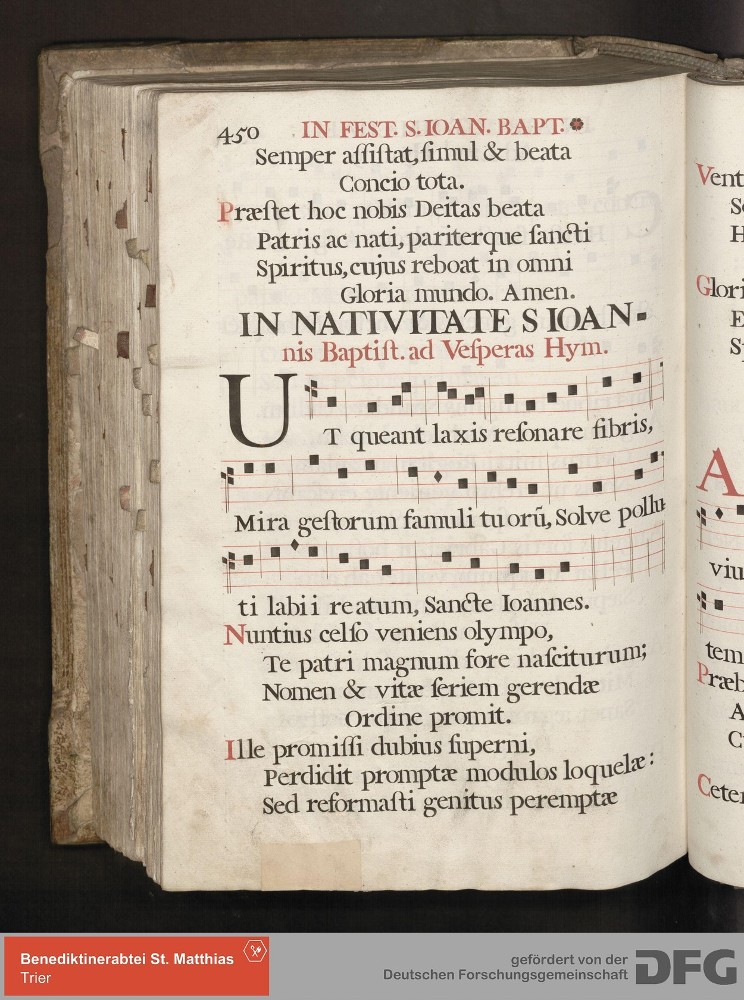 450 IN FEST. S. IOAN. BAPT.
Semper aſſiſtat, ſimul & beata
Concio tota.
Præſtet hoc nobis Deitas beata
Patris ac nati, pariterque ſancti
Spiritus, cujus reboat in omni
Gloria mundo. Amen.
IN NATIVITATE S IOAN-
nis Baptiſt. ad Veſperas Hym.
UT queant laxis reſonare fibris,
Mira geſtorum famuli tuorũ, Solve pollu-
ti labii reatum, Sancte Ioannes.
Nuntius celſo veniens olympo,
Te patri magnum fore naſciturum;
Nomen & vitæ ſeriem gerendæ
Ordine promit.
Ille promiſſi dubius ſuperni,
Perdidit promptæ modulos loquelæ:
Sed reformaſti genitus peremptæ
Vent
H
Glori
E
A
viu
tem
Præb
A
C
Ceter
Benediktinerabtei St. Matthias
Trier
gefördert von der
Deutschen Forschungsgemeinschaft
DFG